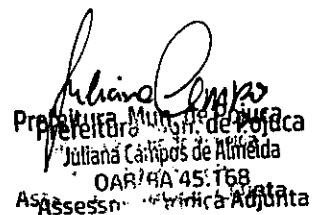 Juliana Campos
Prefeitura Mun. de Pojuca
Juliana Campos de Almeida
OAB/BA 45.168
Assessora Jurídica Adjunta